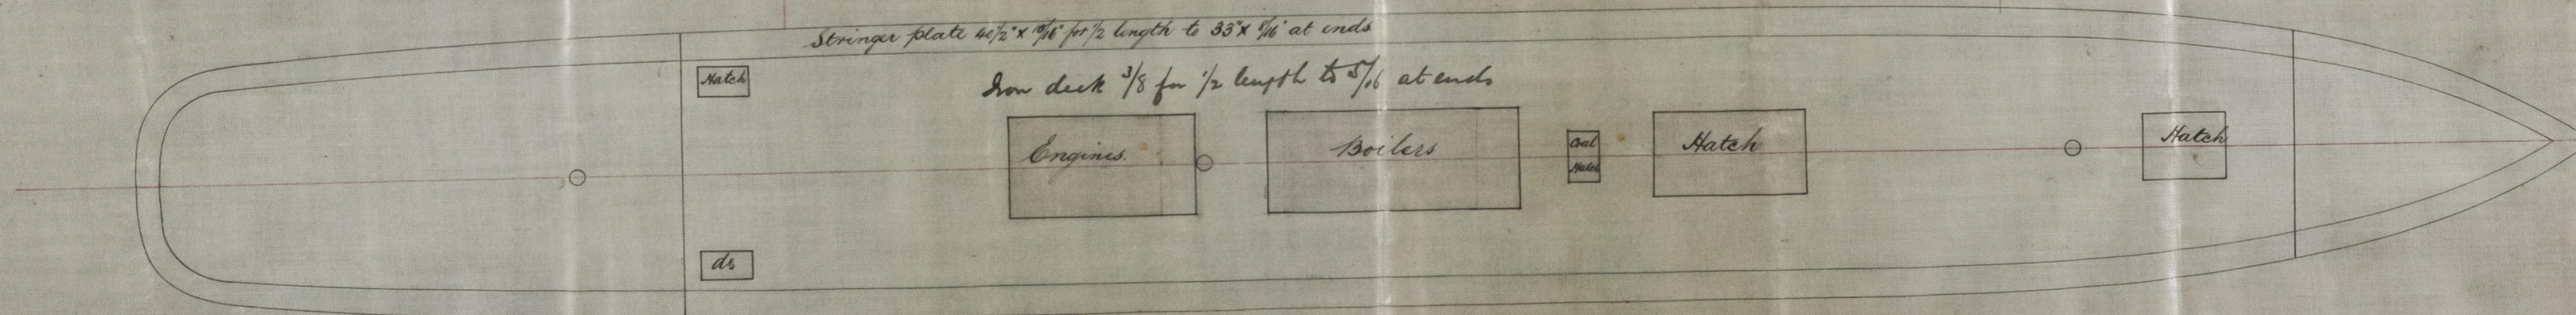 Stringer plate 40 1/2" x 10/16" for 1/2 length to 33" x 8/16" at ends
Hatch
Iron deck 3/8 for 1/2 length to 5/16 at ends
Engines.
Boilers
Coal
Hatch
Hatch
Hatch
do